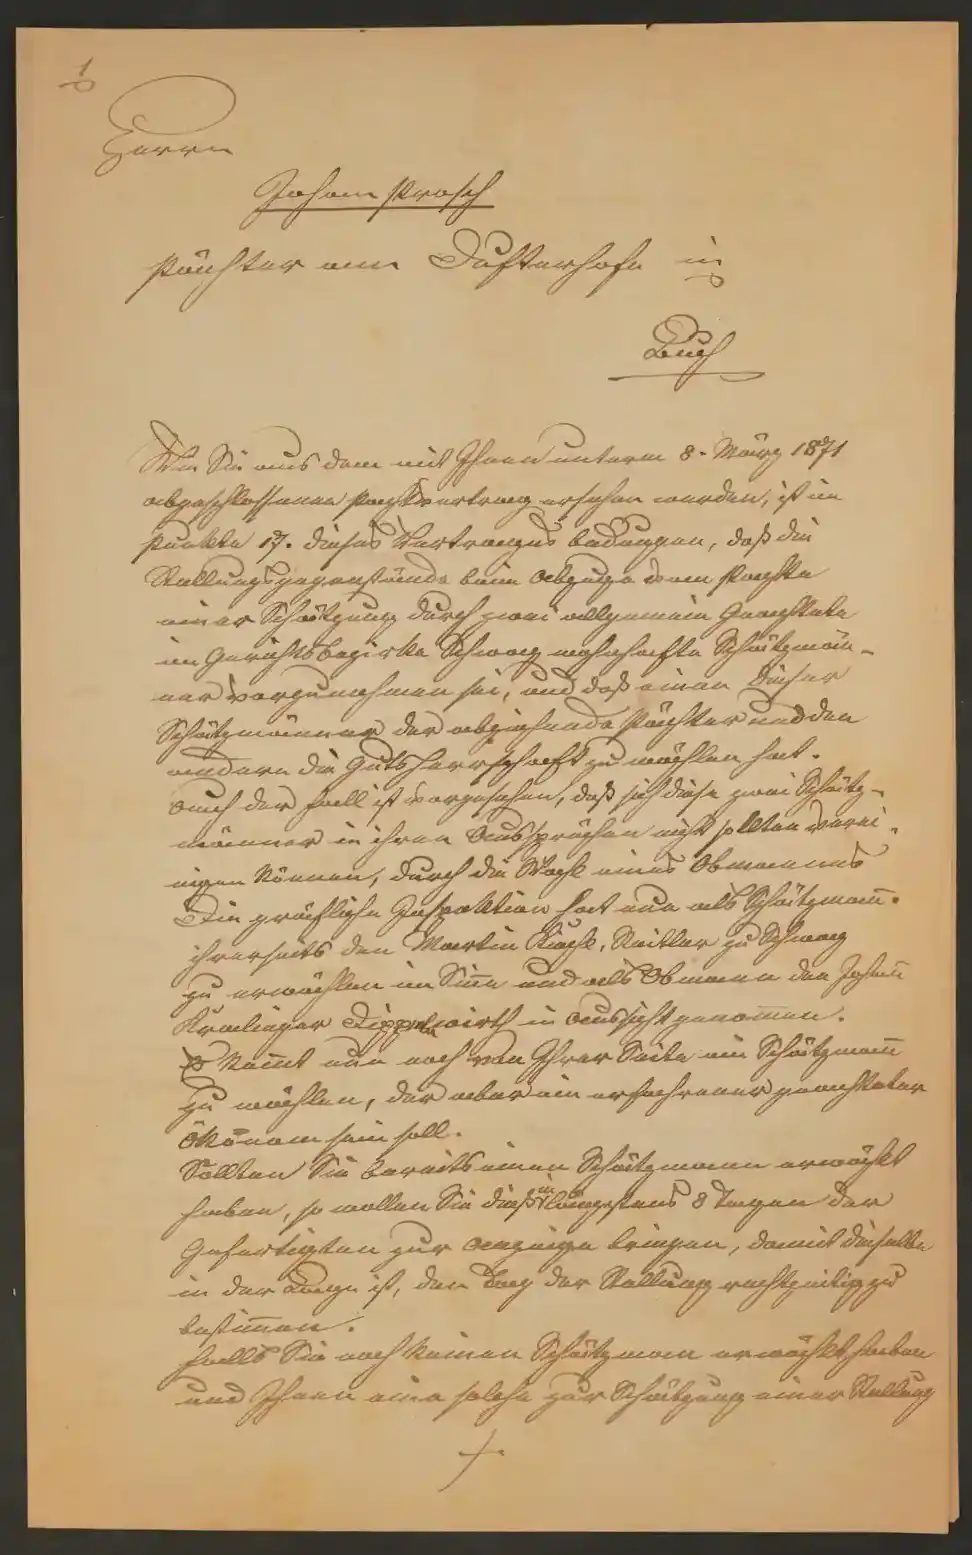 1
Herrn
Johann Prosch
Pächter am Dufterhofe in
Buch
Wie Sie aus dem mit Ihnen unterm 8. März 1871
abgeschlossenen Pachtvertrag ersehen werden, ist im
Punkte 17. dieses Vertranges bedungen, daß die
Stellungsgegenstände beim Abzuge vom Pachte
einer Schätzung durch zwei allgemein Geachtete
im Gerichtsbezirke Schwaz wohnhafte Schätzmän-
ner vorzunehmen sei, und daß einen dieser
Schätzmänner der abziehende Pächter und den
andern die Gutsherrschaft zu wählen hat.
Auch der Fall ist vorgesehen, daß sich diese zwei Schätz-
männer in ihren Aussprüchen nicht sollten verei-
nigen können, durch die Wahl eines Obmannes
Die gräfliche Inspektion hat nun als Schätzmann
ihrerseits den Martin, zu Schwaz
zu erwählen im Sinne und als Obmann den Johann
wirth in Aussicht genommen.
Es kommt nun noch von Ihrer Seite ein Schätzmann
zu wählen, der aber ein erfahrener geachteter
Ökonom sein soll.
Sollten Sie bereits einen Schätzmann erwählt
haben, so wollen Sie dieß in längstens 8 Tagen der
Gefertigten zur Anzeige bringen, damit dieselbe
in der Lage ist, den Tag der Stellung rechtzeitig zu
bestimmen.
Falls Sie noch keinen Schätzmann erwählt haben
und Ihnen eine solche zur Schätzung einer Stellung